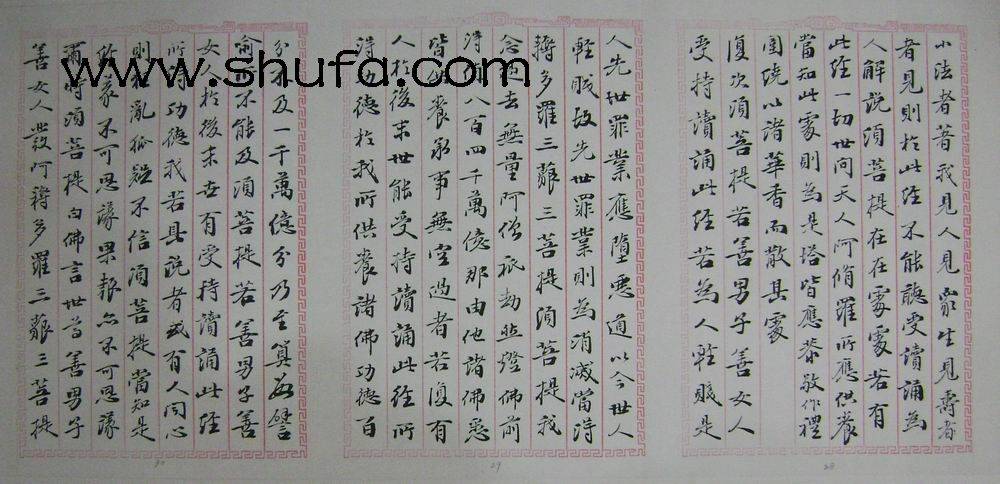 小法者著我見人見眾生見壽者
見則於此經不能聽受讀誦為
人解說須菩提在在處處若有
此經一切世間天人阿脩羅所應供養
當知此處則為是塔皆應恭敬作禮
圍繞以諸華香而散其處
復次須菩提若善男子善女人
受持讀誦此經若為人輕賤是
人先世罪業應墮惡道以今世人
輕賤故先世罪業則為消滅當得
耨多羅三藐三菩提須菩提我
念過去無量阿僧祇劫於燈佛前
得值八百四千萬億那由他諸佛悉
皆供養承事無空過者若復有
人於後末世能受持讀誦此經所
得功德於我所供養諸佛功德百
分不及一千萬億分乃至算數譬
喻所不能及須菩提若善男子善
女人於後末世有受持讀誦此經
所得功德我若具說者或有人聞心
則狂亂狐疑不信須菩提當知是
經義不可思議果報亦不可思議
爾時須菩提白佛言世尊善男子
善女人發阿耨多羅三藐三菩提
www.shufa.com
28
29
30